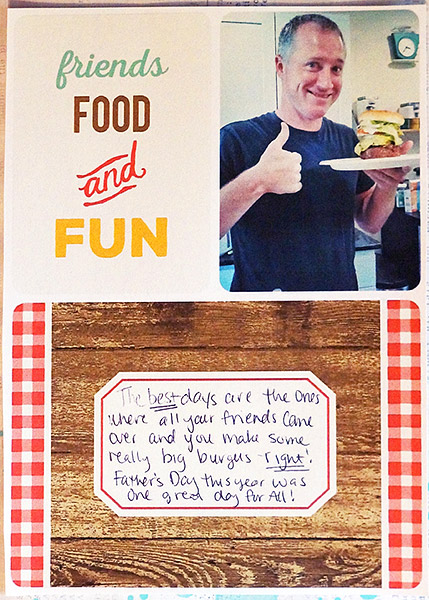 friends
FOOD
and
FUN
The best days are the ones
where all your friends came
over and you make some
really big burgers - right!
Father's Day this year was
one great day for All!